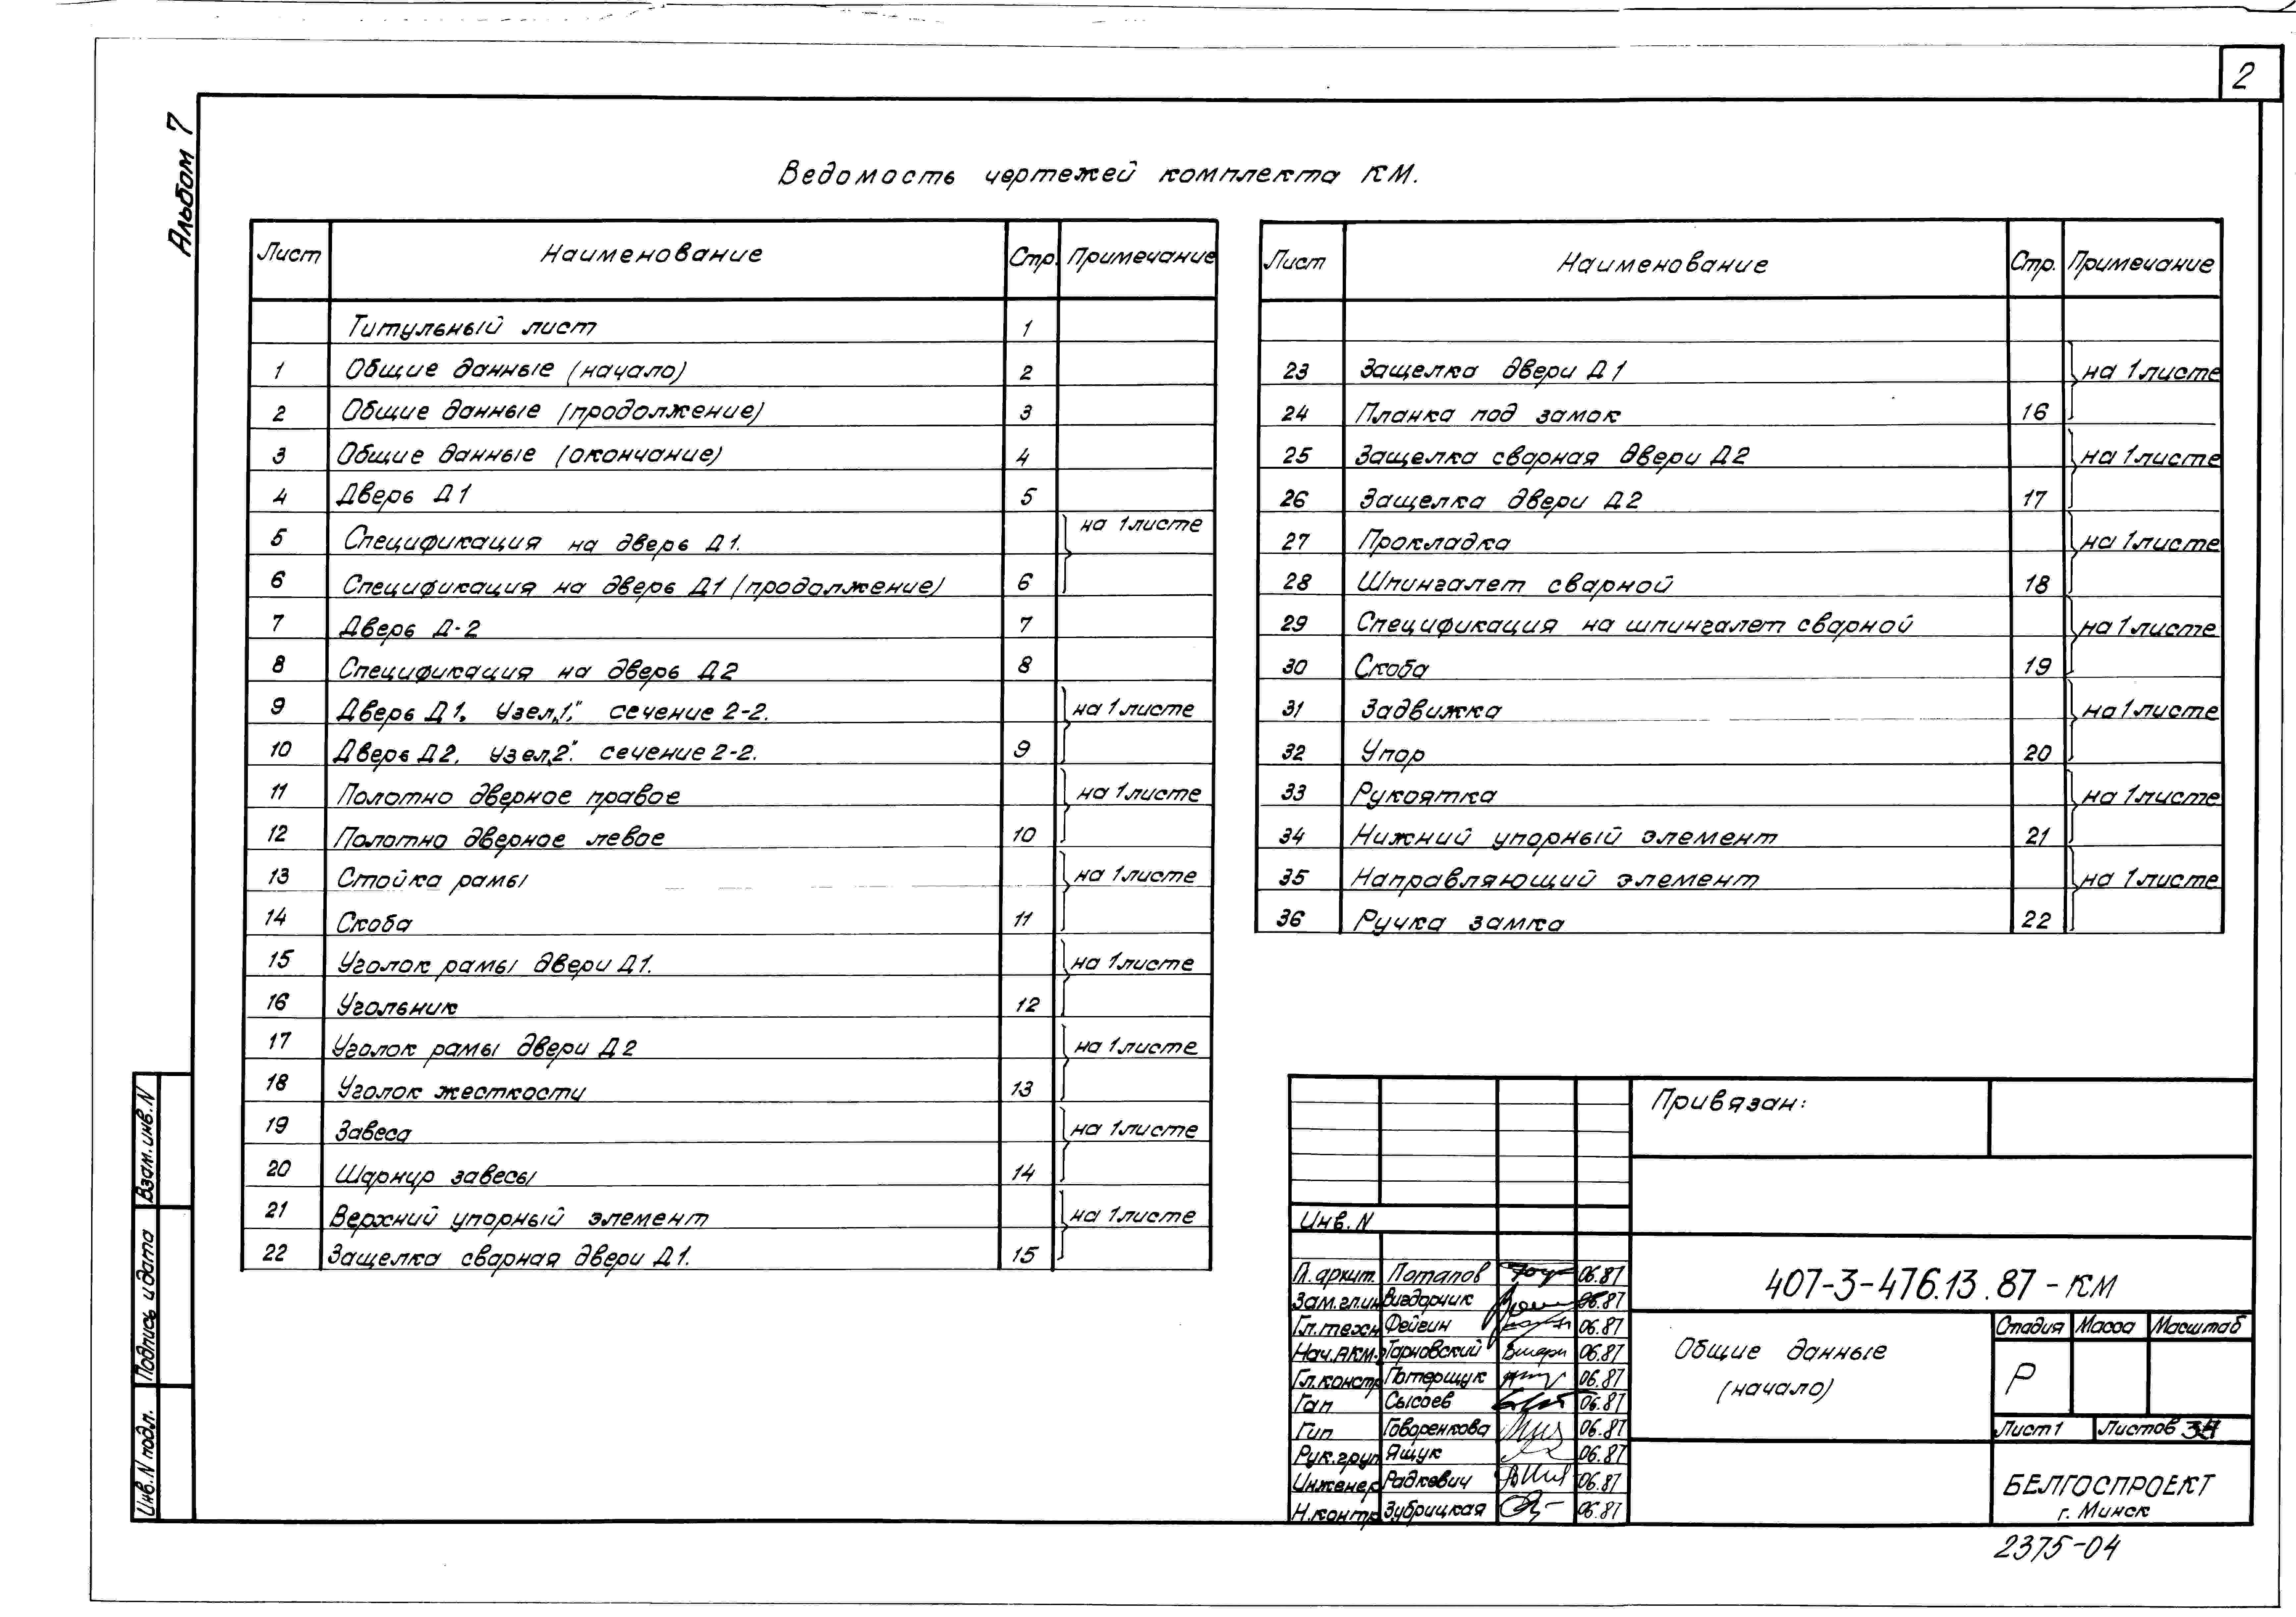 2
Альбом 7
Ведомость чертежей комплекта КМ.
Лист Наименование Стр. Примечание
Титульный лист 1
1 Общие данные (начало) 2
2 Общие данные (продолжение) 3
3 Общие данные (окончание) 4
4 Дверь Д1 5
5 Спецификация на дверь Д1. на 1листе
6 Спецификация на дверь Д1 (продолжение) 6
7 Дверь Д-2 7
8 Спецификация на дверь Д2 8
9 Дверь Д1. Узел„1," сечение 2-2. на 1листе
10 Дверь Д2. Узел„2". сечение 2-2. 9
11 Полотно дверное правое на 1листе
12 Полотно дверное левое 10
13 Стойка рамы на 1листе
14 Скоба 11
15 Уголок рамы двери Д1. на 1листе
16 Угольник 12
17 Уголок рамы двери Д2 на 1листе
18 Уголок жесткости 13
19 Завеса на 1листе
20 Шарнир завесы 14
21 Верхний упорный элемент на 1листе
22 Защелка сварная двери Д1. 15
Лист Наименование Стр. Примечание
23 Защелка двери Д1 на 1листе
24 Планка под замок 16
25 Защелка сварная двери Д2 на 1листе
26 Защелка двери Д2 17
27 Прокладка на 1листе
28 Шпингалет сварной 18
29 Спецификация на шпингалет сварной на 1листе
30 Скоба 19
31 Задвижка на 1листе
32 Упор 20
33 Рукоятка на 1листе
34 Нижний упорный элемент 21
35 Направляющий элемент на 1листе
36 Ручка замка 22
Взам.инв.N
Подпись и дата
Инв.N подл.
Привязан:
Инв.N
Гл.архит. Потапов 06.87
Зам.гл.ин Вигдорчик 06.87
Гл.техн Фейгин 06.87
Нач.АКМ. Тарновский 06.87
Гл.констр Потерщук 06.87
Гап Сысоев 06.87
Гип Говоренкова 06.87
Рук.груп Ящук 06.87
Инженер Радкевич 06.87
Н.контр Зубрицкая 06.87
407-3-476.13.87-КМ
Общие данные
(начало)
Стадия Масса Масштаб
Р
Лист1 Листов
БЕЛГОСПРОЕКТ
г. Минск
2375-04